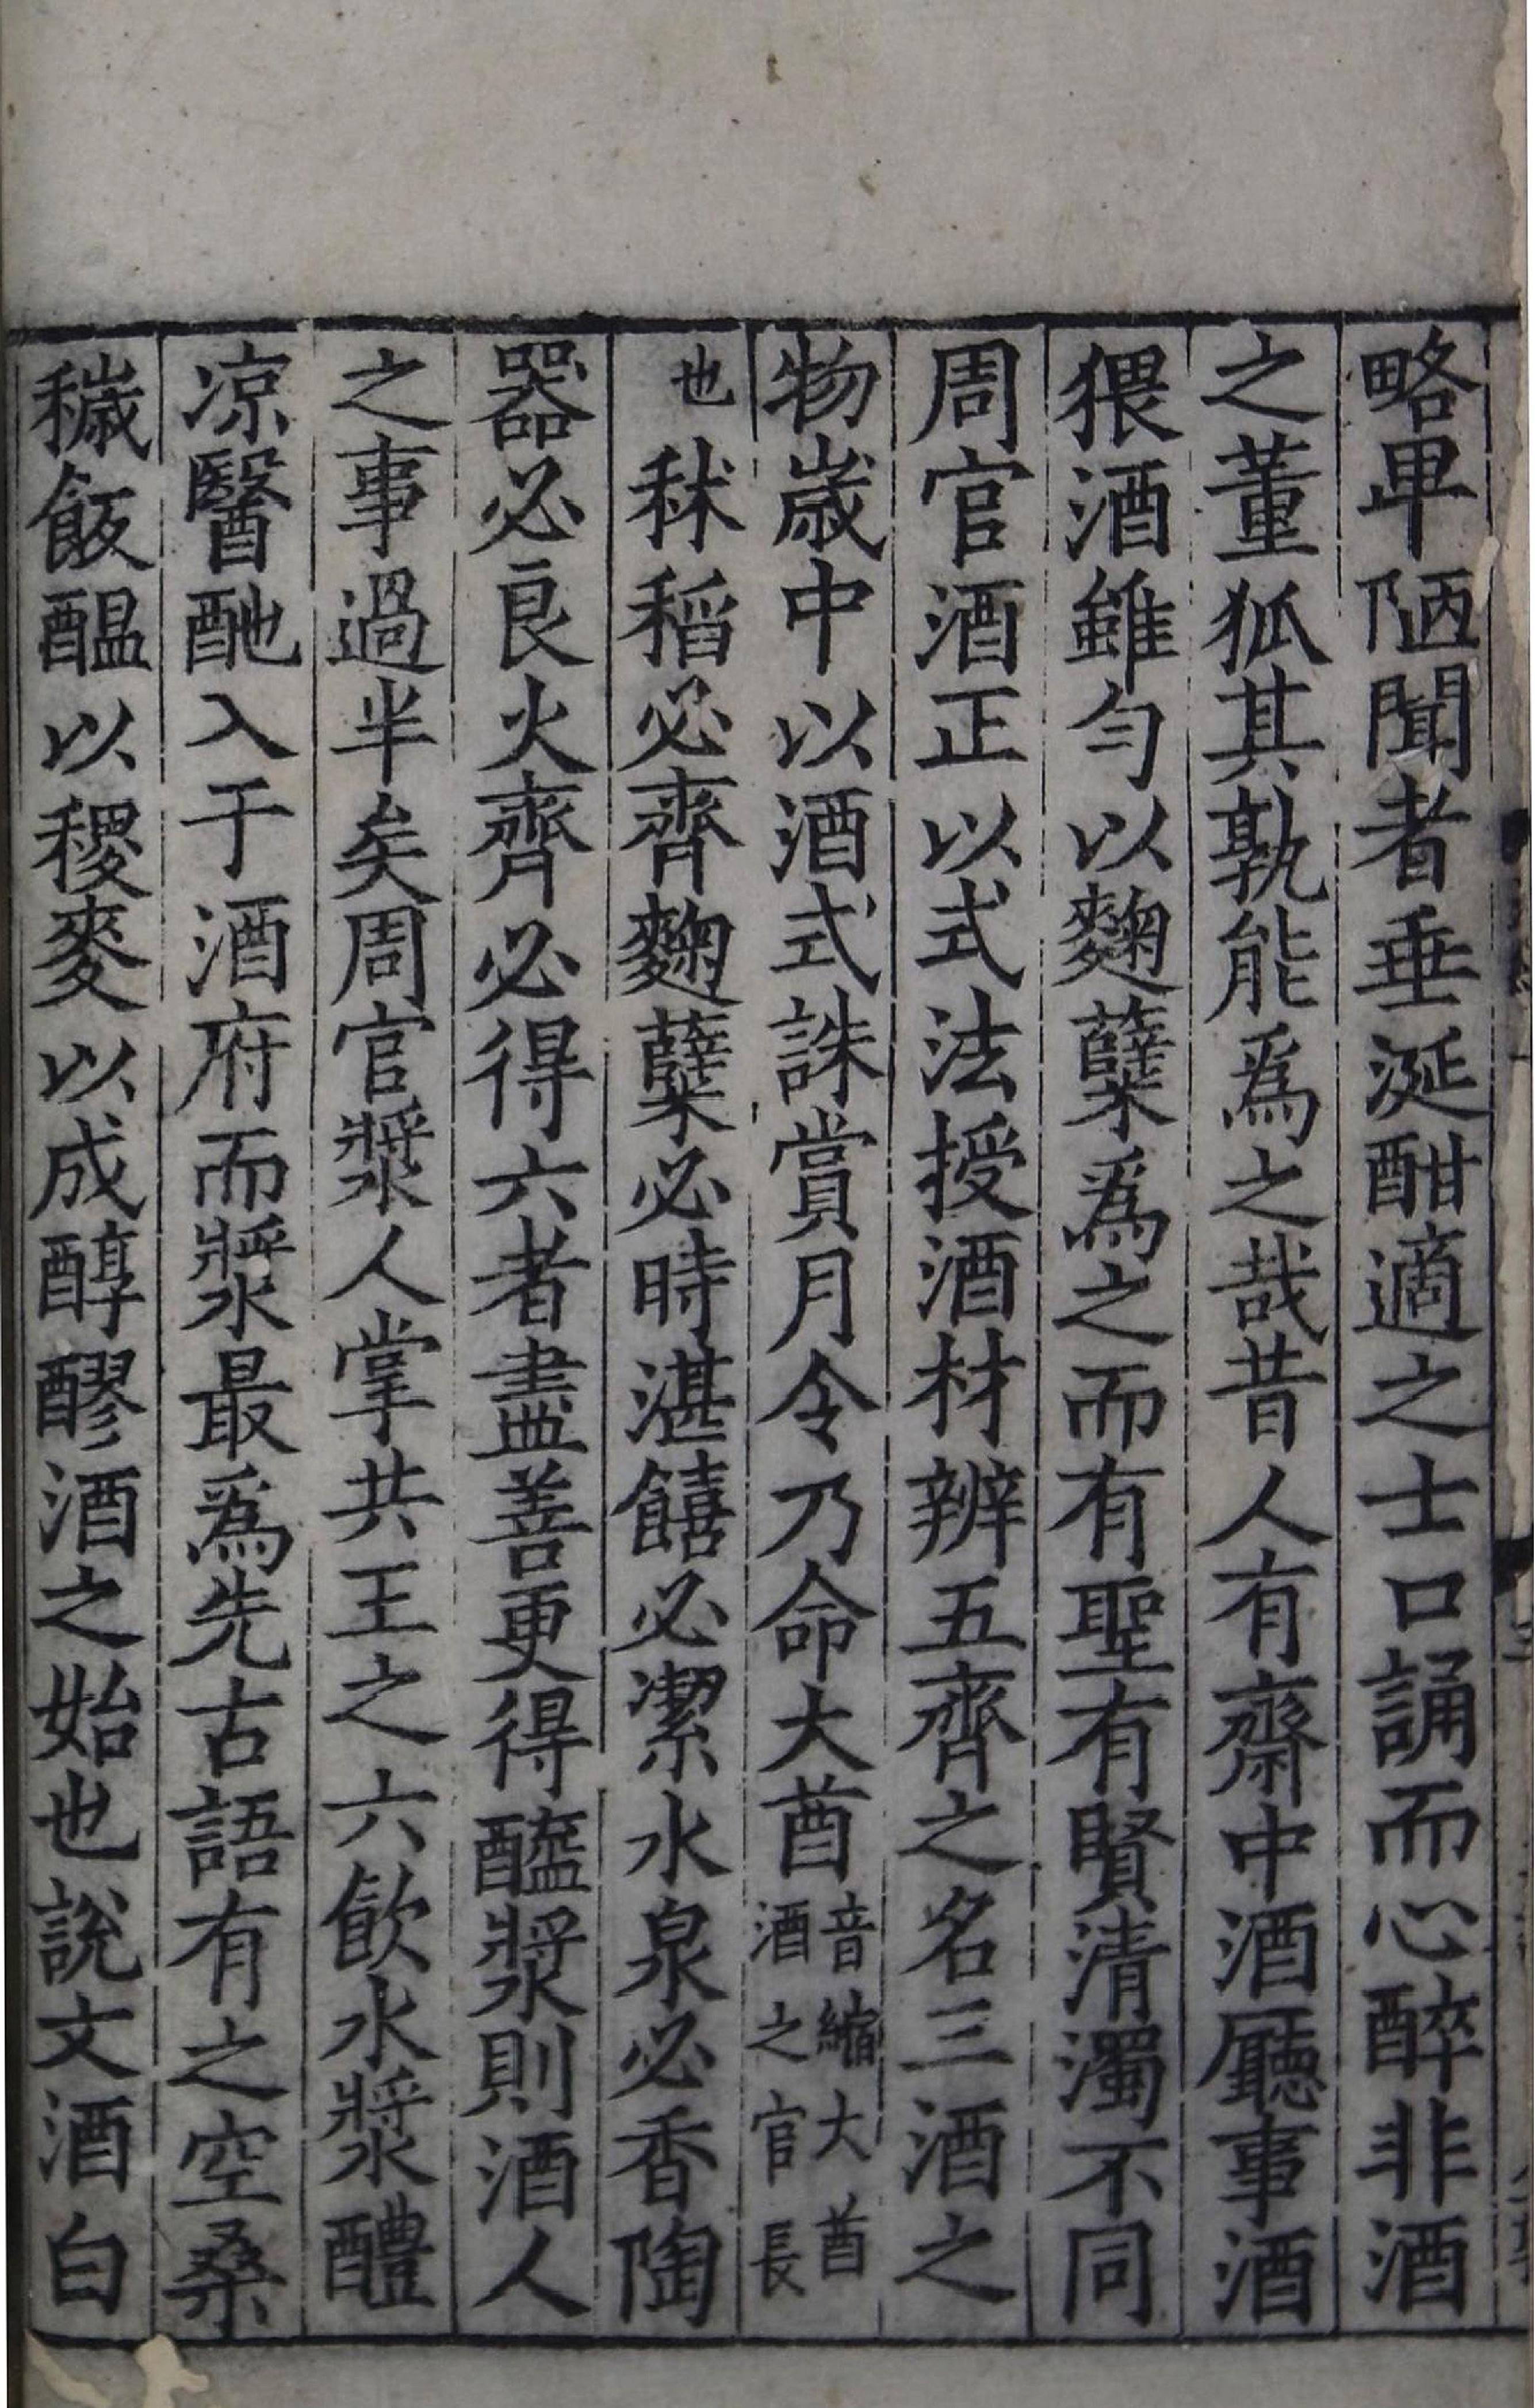 略卑陋聞者垂涎酣適之士口誦而心醉非酒
之董狐其孰能爲之哉昔人有齋中酒廳事酒
猥酒雖勻以麴糵爲之而有聖有賢清濁不同
周官酒正以式法授酒材辨五齊之名三酒之
物歲中以酒式誅賞月令乃命大酋音縮大酋酒之官長
也秫稻必齊麴糵必時湛饎必潔水泉必香陶
器必良火齊必得六者盡善更得醯漿則酒人
之事過半矣周官漿人掌共王之六飲水漿醴
凉醫酏入于酒府而漿最爲先古語有之空桑
穢飯醖以稷麥以成醇醪酒之始也說文酒白